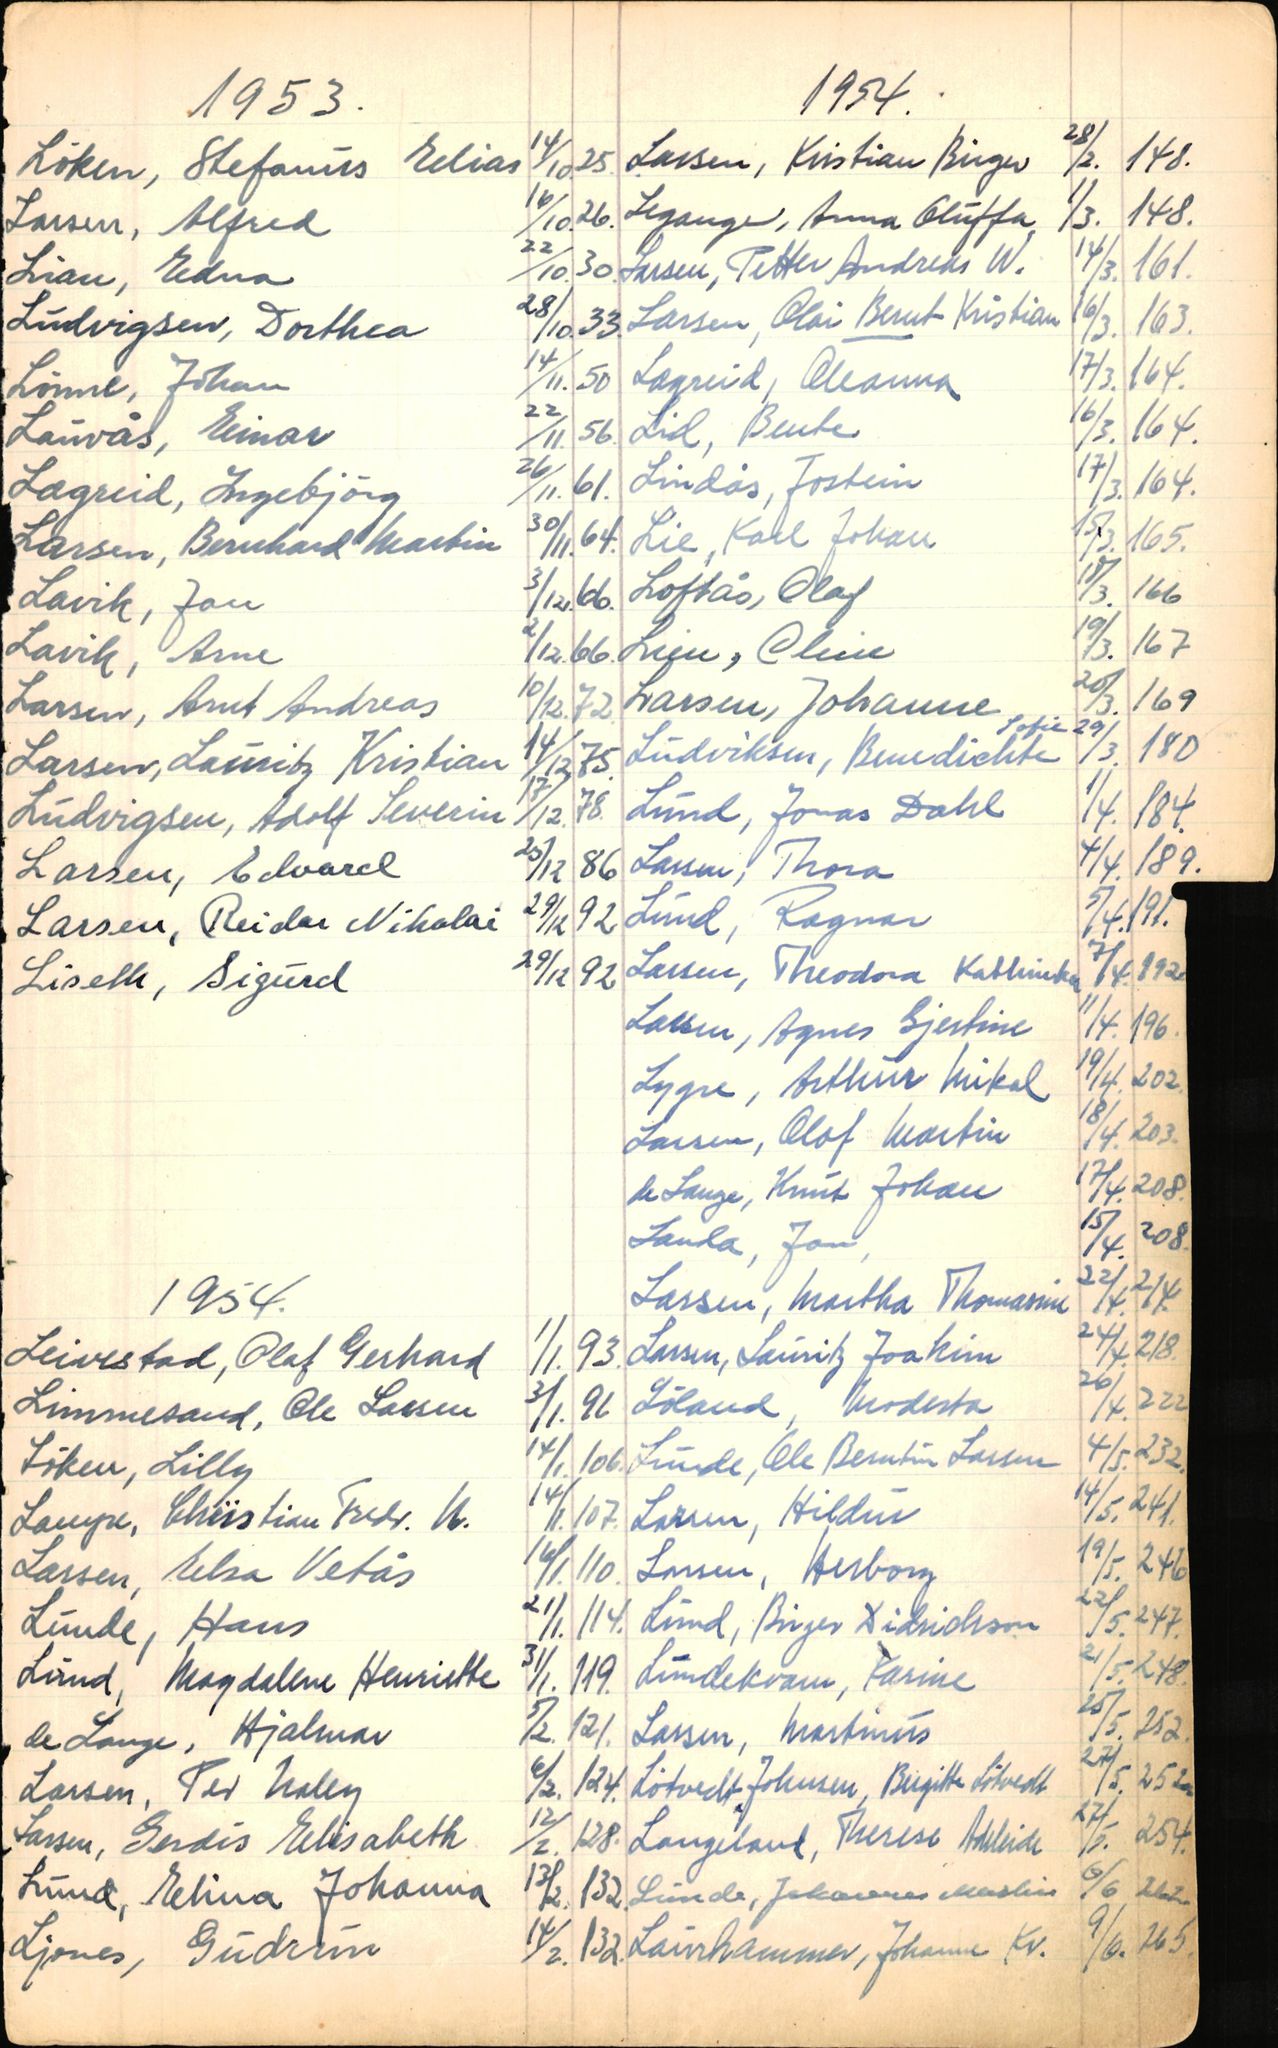 1953.
Löken, Stefanus Elias 14/10 25.
Larsen, Alfred 16/10 26.
Lian, Edna 22/10. 30.
Ludvigsen, Dorthea 28/10. 33.
Lönne, Johan 14/11. 50
Lauvås, Einar 22/11. 56.
Lægreid, Ingebjörg 26/11. 61.
Larsen, Bernhard Martin 30/11. 64.
Lavik, Jon 3/12. 66.
Lavik, Arne 2/12. 66.
Larsen, Arnt Andreas 10/12. 72.
Larsen, Lauritz Kristian 14/12. 75.
Ludvigsen, Adolf Severin 17/12. 78.
Larsen, Edvard 25/12 86
Larsen, Reidar Nikolai 29/12 92
Liseth, Sigurd 29/12 92
1954.
Leivestad, Olaf Gerhard 1/1. 93.
Limmesand, Ole Larsen 3/1. 96
Löken, Lilly 14/1. 106.
Lampe, Christian Fredr. W. 14/1. 107.
Larsen, Elsa Vetås 16/1. 110.
Lunde, Hans 21/1. 114.
Lund, Magdalene Henriette 31/1. 119.
de Lange, Hjalmar 5/2. 121.
Larsen, Per Naley 6/2. 124.
Larsen, Gerdis Elisabeth 12/2. 128.
Lund, Elina Johanna 13/2. 132.
Ljones, Gudrun 14/2. 132.
1954.
Larsen, Kristian Birger 28/2. 148.
Legange, Anna Oluffa 1/3. 148.
Larsen, Petter Andreas W. 14/3. 161.
Larsen, Olai Bernt Kristian 16/3. 163.
Lægreid, Oleanna 17/3. 164.
Lid, Bente 16/3. 164.
Lindås, Jostein 17/3. 164.
Lie, Karl Johan 15/3. 165.
Loftås, Olaf 18/3. 166
Lien, Oline 19/3. 167
Larsen, Johanne 20/3. 169
Ludviksen, Benedichte Sofie 29/3. 180
Lund, Jonas Dahl 1/4. 184.
Larsen, Thora 4/4. 189.
Lund, Ragnar 5/4. 191.
Larsen, Theodora Kathinka 7/4. 192
Larsen, Agnes Gjertine 11/4. 196.
Lygre, Arthur Mikal 19/4. 202.
Larsen, Olaf Martin 18/4. 203.
de Lange, Knut Johan 17/4. 208.
Landa, Jon, 15/4. 208.
Larsen, Martha Thomasine 22/4. 214.
Larsen, Lauritz Joakim 24/4. 218.
Löland, Modesta 26/4. 222
Lunde, Ole Berntin Larsen 4/5. 232.
Larsen, Hildur 14/5. 241.
Larsen, Herborg 19/5. 246
Lund, Birger Didrichson 22/5. 247.
Lundekvam, Karine 21/5. 248.
Larsen, Martinus 25/5. 252.
Lötvedt Johnsen, Birgitte Lötvedt 27/5. 252
Langeland, Therese Adeleide 27/5. 254.
Lunde, Johannes Martin 6/6 262.
Laurhammer, Johanne Kv. 9/6. 265.